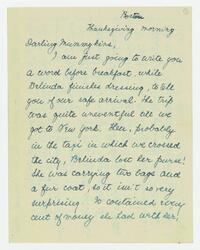 Boston
Thanksgiving morning
Darling Mummykins,
I am just going to write you
a word before breakfast, while
Belinda finishes dressing, to tell
you of our safe arrival. The trip
was quite uneventful till we
got to New York. Then, probably
in the taxi in which we crossed
the city, Belinda lost her purse!
She was carrying two bags and
a fur coat, so it isn't so very
surprising. It contained every
cent of money she had with her,